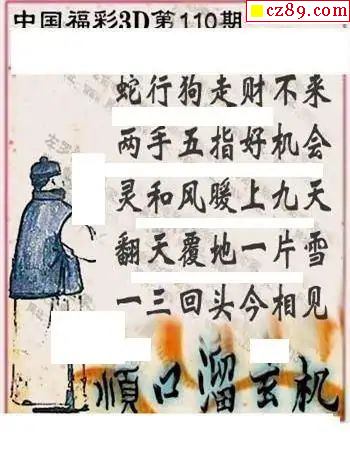 cz89.com
中国福彩3D第110期
蛇行狗走财不来
两手五指好机会
灵和风暖上九天
翻天覆地一片雪
一三回头今相见
顺口溜玄机